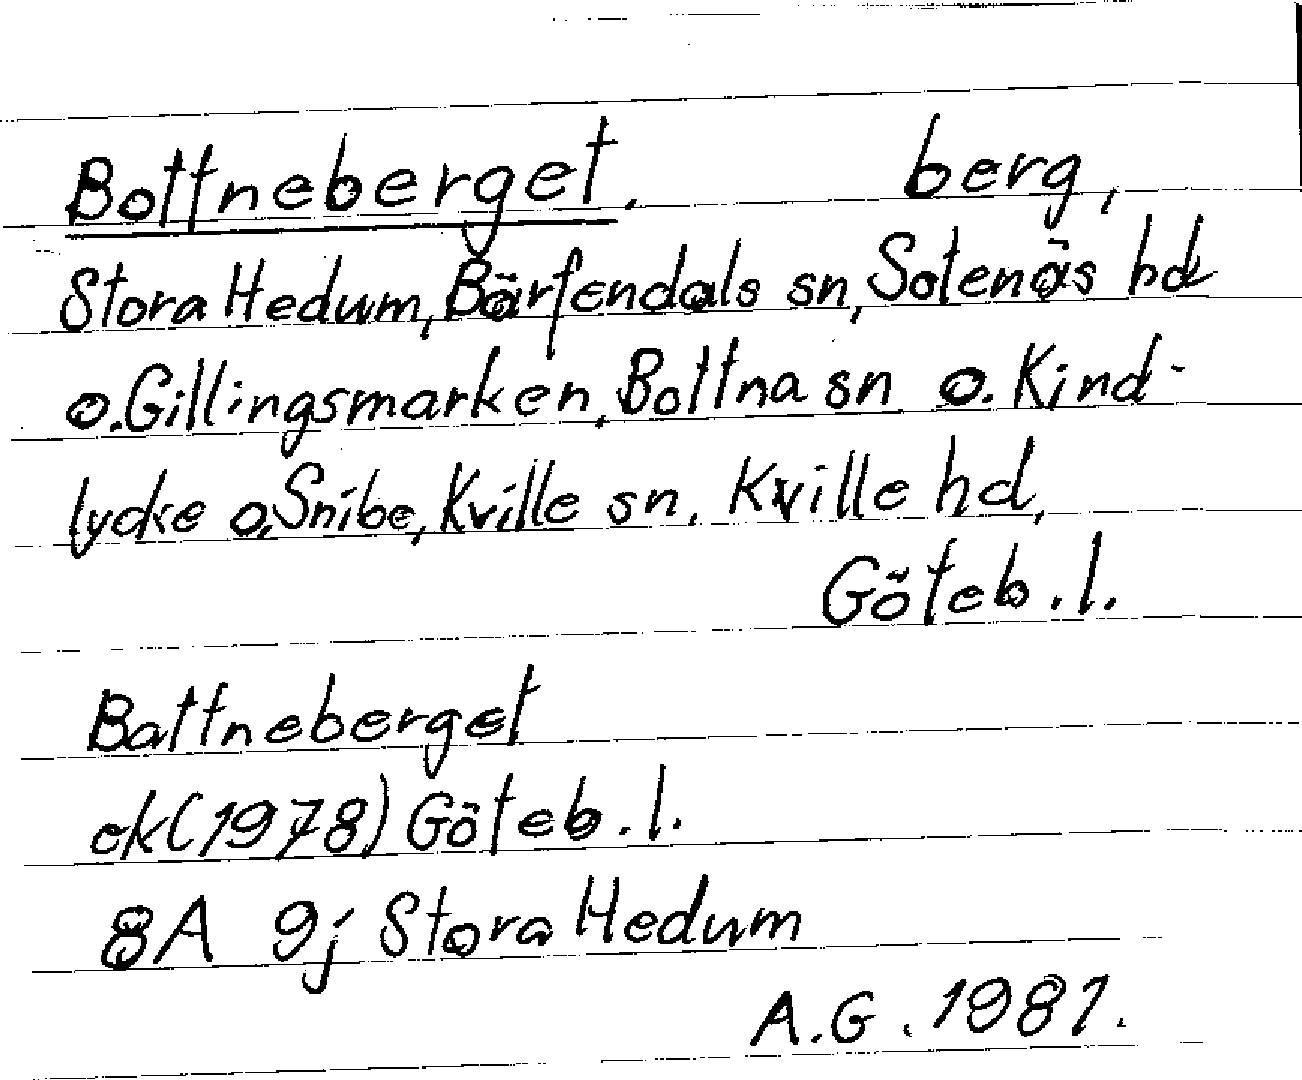 Bottneberget. berg,
Stora Hedum, Bärfendals sn, Sotenäs hd
o. Gillingsmarken, Bottna sn o. Kind-
lycke o. Snibe, Kville sn. Kville hd,
Göteb. l.
Battneberget
ek (1978) Göteb. l.
8A 9j Stora Hedum
A.G. 1981.